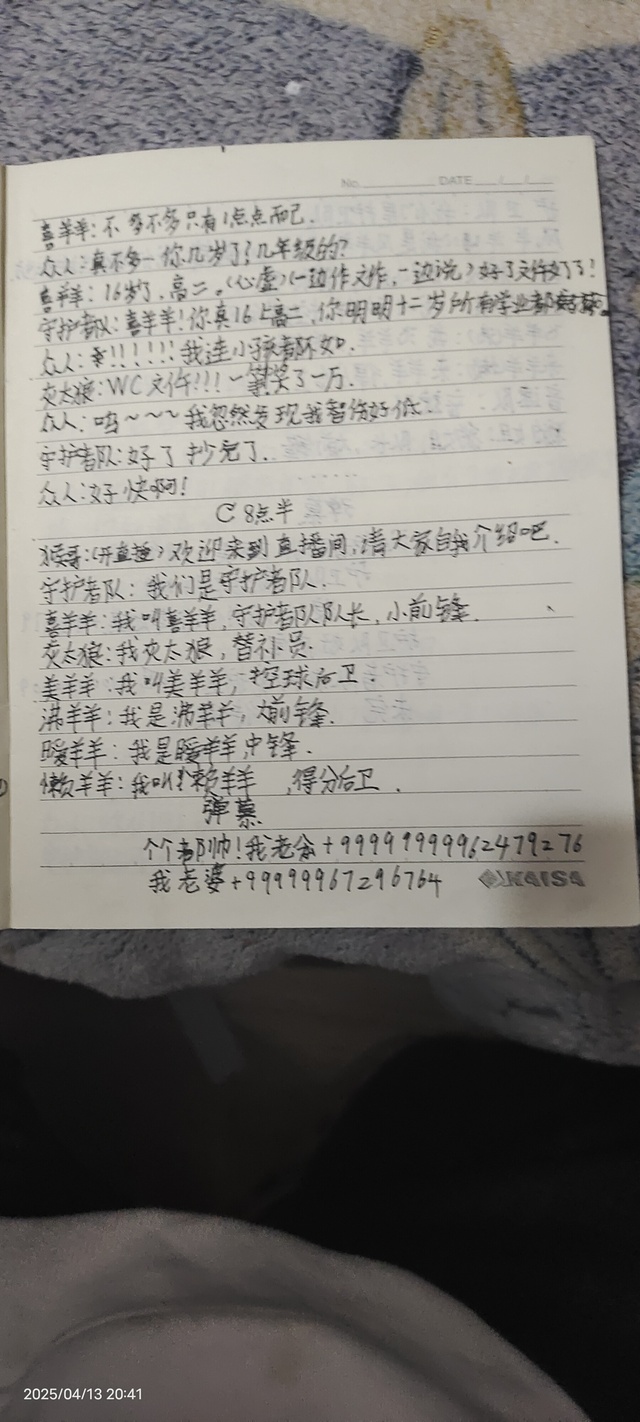 No. DATE / /
喜羊羊：不多不多只有1点点而已.
众人：真不多一你几岁了？几年级的？
喜羊羊：16岁了，高二。(心虚)(一边作文件，一边说)好了文件好了！
守护者队：喜羊羊！你真16上高二，你明明十二岁所有学业都
众人：!!!!!!我连小孩都不如.
灰太狼：WC文件!!!一掌笑了一万.
众人：呜～～～我忽然发现我智伤好低.
守护者队：好了抄完了.
众人：好快啊!
C 8点半
猴哥：(开直播)欢迎来到直播间，请大家自我介绍吧.
守护者队：我们是守护者队.
喜羊羊：我叫喜羊羊，守护者队队长，小前锋.
灰太狼：我灰太狼，替补员.
美羊羊：我叫美羊羊，控球后卫.
沸羊羊：我是沸羊羊，大前锋.
暖羊羊：我是暖羊羊,中锋.
懒羊羊：我叫懒羊羊，得分后卫.
弹慕
个个都帅！我老公+99999999962479276
我老婆+99999967296764
KAISA
2025/04/13 20:41